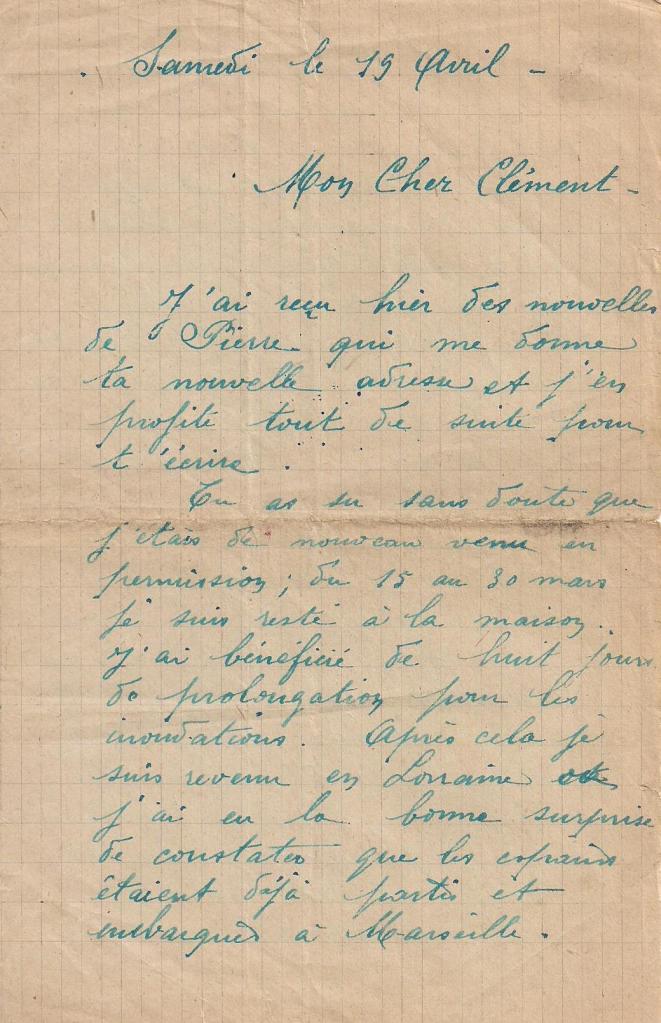 Samedi le 19 Avril -
Mon Cher Clément -
J'ai reçu hier des nouvelles
de Pierre qui me donne
ta nouvelle adresse et j'en
profite tout de suite pour
t'écrire.
Tu as su sans doute que
j'étais de nouveau venu en
permission ; du 15 au 30 mars
je suis resté à la maison.
J'ai bénéficié de huit jours
de prolongation pour les
inondations. Après cela je
suis revenu en Lorraine et
j'ai eu la bonne surprise
de constater que les
étaient déjà partis et
embarqués à Marseille.